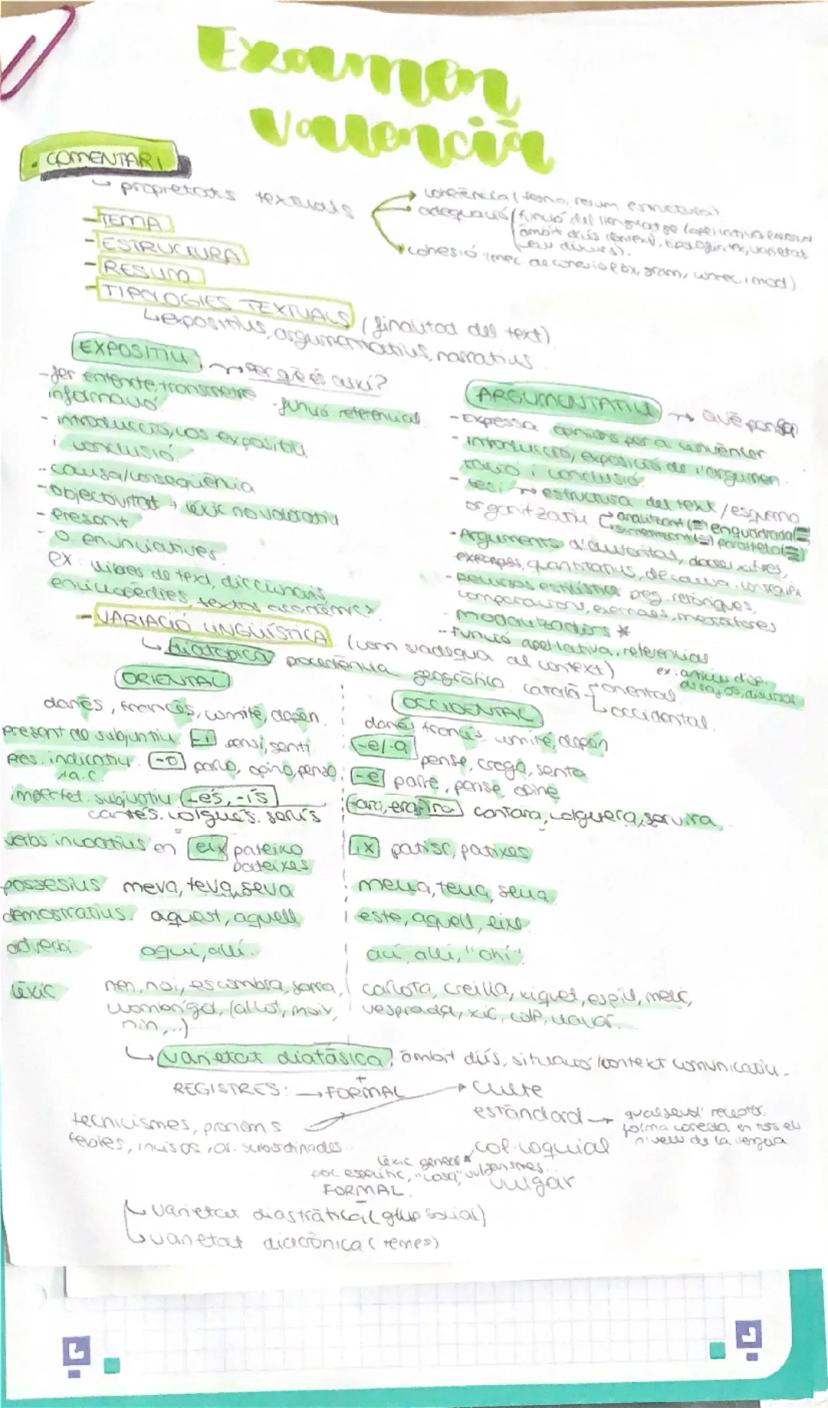 Examen
Valencià
. COMENTARI
↳ propietats textuals
coherència (tema, resum, estructura)
adequació (funció del llenguatge (apel·lativa,
àmbit d'ús, tipologia, varietat
cohesió (mec de cohesió lèx, gram, conec i mod)
- TEMA
- ESTRUCTURA
- RESUM
- TIPOLOGIES TEXTUALS (finalitat del text)
↳ expositius, argumentatius, narratius
EXPOSITIU → Per què és així?
- fer entendre, transmetre
informació. - funció referencial
- introducció, cos expositiu
i conclusió.
- causa/conseqüència
- objectivitat → lèxic no valoratiu
- present
- O enunciatives.
ex: llibres de text, diccionaris
enciclopèdies, textos acadèmics.
ARGUMENTATIU → què pensa
- Expressa opinions per a convèncer
- introducció, exposició de l'argumen.
tació i conclusió
- tesi → estructura del text / esquema
organitzatiu
- Arguments d'autoritat, dades, xifres,
exemples, quantitatius, de causa
- Recursos estilístics preg. retòriques,
comparacions, metàfores
- modalitzadors *
- funció apel·lativa, referencial
- VARIACIÓ LINGÜÍSTICA (com s'adequa al context)
↳ diatòpica procedència geogràfica. català oriental
occidental.
ORIENTAL
danès, francès, comitè, depèn.
present de subjuntiu -i sensi, senti
Pres. indicatiu -o parlo, opino, penso
1a.c
imperfet. subjuntiu -és, -ís
cantés. volgués. servís
verbs incoatius en eix pateixo
pateixes
possesius meva, teva, seva
demostratius aquest, aquell
adverbi aquí, allí.
lèxic nen, noi, escombra,
(al·lot,
nin,...)
OCCIDENTAL
danés francés comité, depén
-e/-a pense, crega, senta
-e parle, pense opine
-ara, era, ira cantara, volguera, servira.
ix patisc, patixes
meua, teua, seua
este, aquell, eixe
ací, allí, "ahí".
carlota, creïlla, xiquet, espill, melic,
vesprada, xic, colp,
↳ varietat diafàsica: àmbit d'ús, situació/context comunicatiu.
REGISTRES: → + FORMAL
culte
estàndard → qualsevol receptor.
forma correcta en tots els
nivells de la llengua
col·loquial
vulgar
tecnicismes, pronoms
febles, incisos, or. subordinades
lèxic general
poc específic, "cosa", vulgarismes...
FORMAL
-
↳ varietat diastràtica (grup social)
↳ varietat diacrònica (temes)